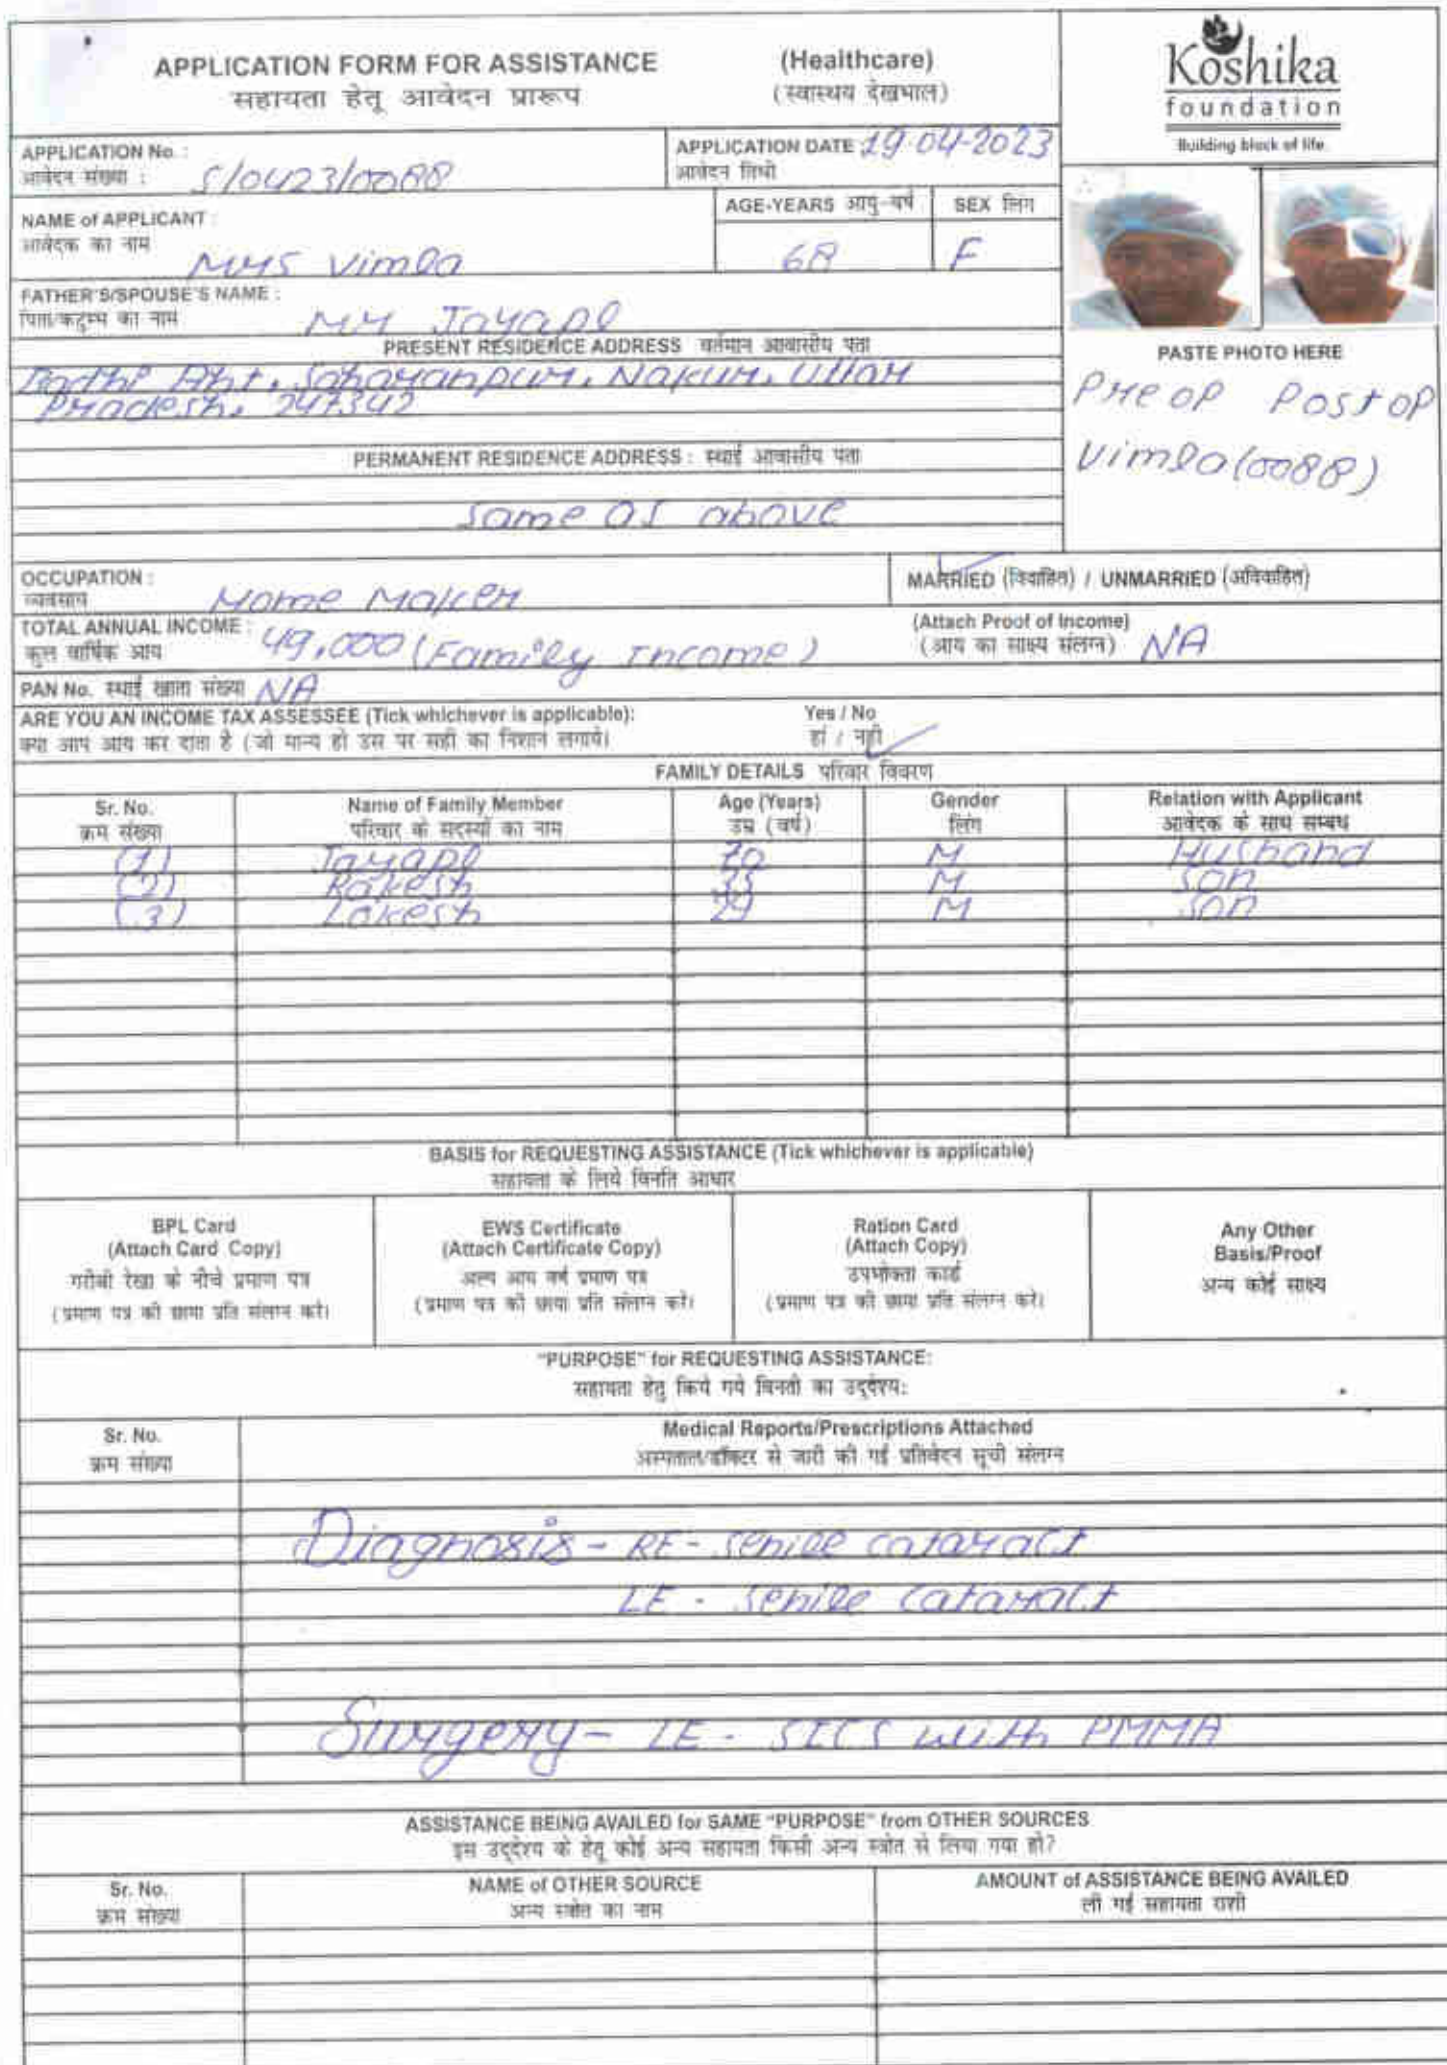 APPLICATION FORM FOR ASSISTANCE (Healthcare)
सहायता हेतू आवेदन प्रारूप (स्वास्थय देखभाल)
Koshika
foundation
Building block of life
APPLICATION No. : S/0423/0088
आवेदन संख्या :
APPLICATION DATE : 19-04-2023
आवेदन तिथी
NAME of APPLICANT : Mrs Vimla
आवेदक का नाम
AGE-YEARS आयु-वर्ष 68
SEX लिंग F
FATHER'S/SPOUSE'S NAME : Mr Jayapl
पिता/कटुम्ब का नाम
PRESENT RESIDENCE ADDRESS वर्तमान आवासीय पता
Saharanpur, Nakur, Uttar
Pradesh, 247342
PERMANENT RESIDENCE ADDRESS : स्थाई आवासीय पता
Same as above
PASTE PHOTO HERE
Pre op Post op
Vimla (0088)
OCCUPATION : Home Maker
व्यवसाय
MARRIED (विवाहित) / UNMARRIED (अविवाहित)
TOTAL ANNUAL INCOME : 49,000 (Family Income)
कुल वार्षिक आय
(Attach Proof of Income)
(आय का साक्ष्य संलग्न) NA
PAN No. स्थाई खाता संख्या NA
ARE YOU AN INCOME TAX ASSESSEE (Tick whichever is applicable): Yes / No
क्या आप आय कर दाता है (जो मान्य हो उस पर सही का निशान लगाये। हां / नही
FAMILY DETAILS परिवार विवरण
Sr. No. Name of Family Member Age (Years) Gender Relation with Applicant
क्रम संख्या परिवार के सदस्यों का नाम उम्र (वर्ष) लिंग आवेदक के साथ सम्बंध
(1) Jayapl 70 M Husband
(2) Rakesh M Son
(3) Lokesh 29 M Son
BASIS for REQUESTING ASSISTANCE (Tick whichever is applicable)
सहायता के लिये विनति आधार
BPL Card
(Attach Card Copy)
गरीबी रेखा के नीचे प्रमाण पत्र
(प्रमाण पत्र की छाया प्रति संलग्न करे।
EWS Certificate
(Attach Certificate Copy)
अल्प आय वर्ग प्रमाण पत्र
(प्रमाण पत्र की छाया प्रति संलग्न करे।
Ration Card
(Attach Copy)
उपभोक्ता कार्ड
(प्रमाण पत्र की छाया प्रति संलग्न करे।
Any Other
Basis/Proof
अन्य कोई साक्ष्य
"PURPOSE" for REQUESTING ASSISTANCE:
सहायता हेतु किये गये विनती का उद्देश्य:
Sr. No. Medical Reports/Prescriptions Attached
क्रम संख्या अस्पताल/डॉक्टर से जारी की गई प्रतिवेदन सूची संलग्न
Diagnosis - RE - senile cataract
LE - senile cataract
Surgery - LE - SICS with PMMA
ASSISTANCE BEING AVAILED for SAME "PURPOSE" from OTHER SOURCES
इस उद्देश्य के हेतू कोई अन्य सहायता किसी अन्य स्त्रोत से लिया गया हो?
Sr. No. NAME of OTHER SOURCE AMOUNT of ASSISTANCE BEING AVAILED
क्रम संख्या अन्य स्त्रोत का नाम ली गई सहायता राशी